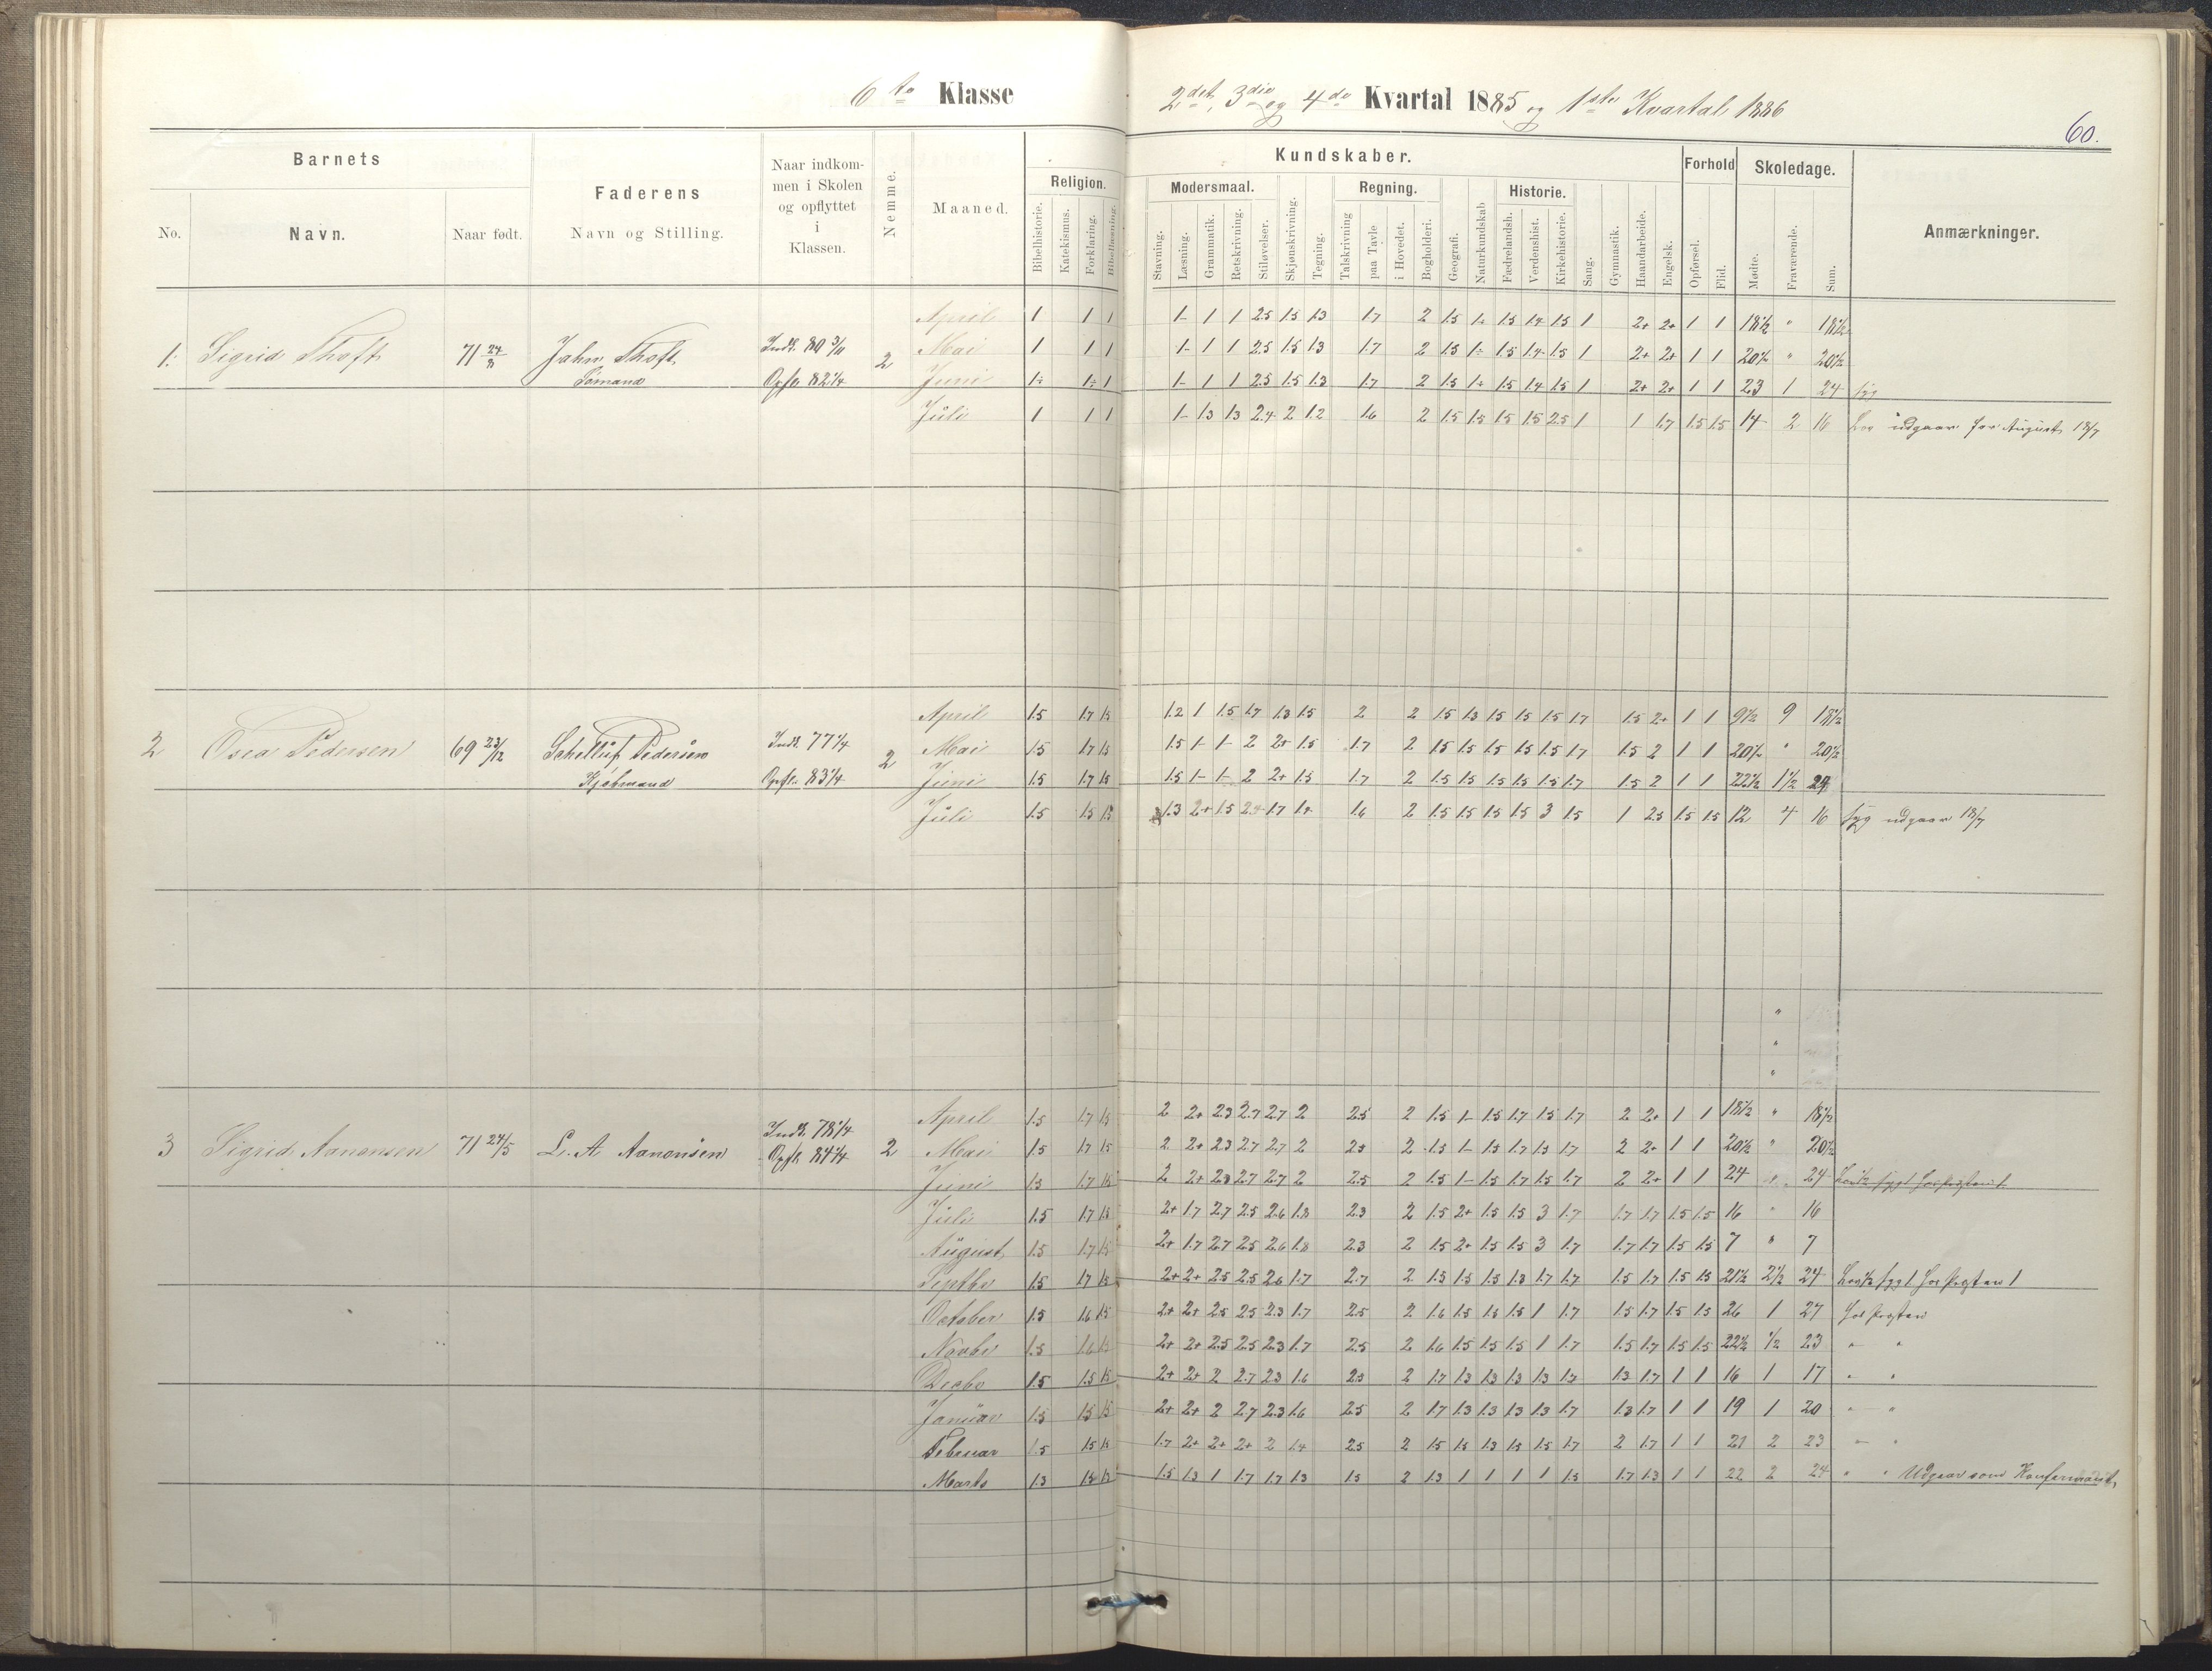 6te Klasse
2det, 3die og 4de Kvartal 1885 og 1ste Kvartal 1886
60.
Barnets
No.
Navn.
Naar født.
Faderens
Navn og Stilling.
Naar indkom-
men i Skolen
og opflyttet
i
Klassen.
Nemme.
Maaned.
Kundskaber.
Religion.
Bibelhistorie.
Katekismus.
Forklaring.
Bibellæsning.
Modersmaal.
Stavning.
Læsning.
Grammatik.
Retskrivning.
Stiløvelser.
Skjønskrivning.
Tegning.
Regning.
Talskrivning
paa Tavle
i Hovedet.
Bogholderi.
Geografi.
Naturkundskab
Historie.
Fædrelandsh.
Verdenshist.
Kirkehistorie.
Sang.
Gymnastik.
Haandarbeide.
Engelsk.
Forhold
Opførsel.
Flid.
Skoledage.
Mødte.
Fraværende.
Sum.
Anmærkninger.
1. Sigrid Thoft 71 John Thoft Indk. 80 3/11 2
Sømand Opfl. 82 1/4
April 1 1 1 1- 1 1 2.5 1.5 1.3 1.7 2 1.5 1÷ 1.5 1.4 1.5 1 2+ 2+ 1 1 18 1/2 " 18 1/2
Mai 1 1 1 1- 1 1 2.5 1.5 1.3 1.7 2 1.5 1÷ 1.5 1.4 1.5 1 2+ 2+ 1 1 20 1/2 " 20 1/2
Juni 1÷ 1÷ 1 1- 1 1 2.5 1.5 1.3 1.7 2 1.5 1÷ 1.5 1.4 1.5 1 2+ 2+ 1 1 23 1 24 syg
Juli 1 1 1 1- 1.3 1.3 2.4 2 1.2 1.6 2 1.5 1.5 1.5 1.5 2.5 1 1 1.7 1.5 1.5 14 2 16 udgaar for August 18/7
2 Osea Pedersen 69 23/12 Pedersen Indk. 77 1/4 2
Kjøbmand Opfl. 83 1/4
April 1.5 1.7 1.5 1.2 1 1.5 1.7 1.3 1.5 2 2 1.5 1.3 1.5 1.5 1.5 1.7 1.5 2+ 1 1 9 1/2 9 18 1/2
Mai 1.5 1.7 1.5 1.5 1- 1- 2 2+ 1.5 1.7 2 1.5 1.5 1.5 1.5 1.5 1.7 1.5 2 1 1 20 1/2 " 20 1/2
Juni 1.5 1.7 1.5 1.5 1- 1- 2 2+ 1.5 1.7 2 1.5 1.5 1.5 1.5 1.5 1.7 1.5 2 1 1 22 1/2 1 1/2 24
Juli 1.5 1.5 1.5 1.3 2+ 1.5 2.4 1.7 1+ 1.6 2 1.5 1.5 1.5 1.5 3 1.5 1 2.5 1.5 1.5 12 4 16 syg udgaar 18/7
"
"
"
3 Sigrid Aanonsen 71 24/5 L. A. Aanonsen Indk. 78 1/4 2
Opfl. 84 1/4
April 1.5 1.7 1.5 2 2+ 2.3 2.7 2.7 2 2.5 2 1.5 1- 1.5 1.7 1.5 1.7 2 2+ 1 1 18 1/2 " 18 1/2
Mai 1.5 1.7 1.5 2 2+ 2.3 2.7 2.7 2 2.5 2 1.5 1- 1.5 1.7 1.5 1.7 2 2+ 1 1 20 1/2 " 20 1/2
Juni 1.5 1.7 1.5 2 2+ 2.3 2.7 2.7 2 2.5 2 1.5 1- 1.5 1.7 1.5 1.7 2 2+ 1 1 24 " 24
Juli 1.5 1.7 1.5 2+ 1.7 2.7 2.5 2.6 1.8 2.3 2 1.5 2+ 1.5 1.5 3 1.7 1.7 1.7 1.5 1.5 16 " 16
August 1.5 1.7 1.5 2+ 1.7 2.7 2.5 2.6 1.8 2.3 2 1.5 2+ 1.5 1.5 3 1.7 1.7 1.7 1.5 1.5 7 " 7
Septbr 1.5 1.7 1.5 2+ 2+ 2.5 2.5 2.6 1.7 2.7 2 1.5 1.5 1.5 1.3 1.7 1.7 1.5 1.7 1.5 1.5 21 1/2 2 1/2 24 syg 1 hos Presten 1
October 1.5 1.6 1.5 2+ 2+ 2.5 2.5 2.3 1.7 2.5 2 1.6 1.5 1.5 1.5 1 1.7 1.5 1.7 1.5 1.5 26 1 27 hos Presten
Novbr 1.5 1.6 1.5 2+ 2+ 2.5 2.5 2.3 1.7 2.5 2 1.6 1.5 1.5 1.5 1 1.7 1.5 1.7 1.5 1.5 22 1/2 1/2 23 " "
Decbr 1.5 1.5 1.5 2+ 2+ 2 2.7 2.3 1.6 2.5 2 1.7 1.3 1.3 1.3 1.3 1.7 1.3 1.7 1 1 16 1 17 " "
Januar 1.5 1.5 1.5 2+ 2+ 2 2.7 2.3 1.6 2.5 2 1.7 1.3 1.3 1.3 1.3 1.7 1.3 1.7 1 1 19 1 20 " "
Februar 1.5 1.5 1.5 1.7 2+ 2+ 2+ 2 1.4 2.5 2 1.5 1.5 1.3 1.5 1.5 1.7 2 1.7 1 1 21 2 23 " "
Marts 1.3 1.5 1.3 1.5 1.3 1 1.7 1.7 1.3 1.5 2 1.3 1 1 1 1 1.5 1.7 1.3 1 1 22 2 24 " " Udgaar som Konfirmand,